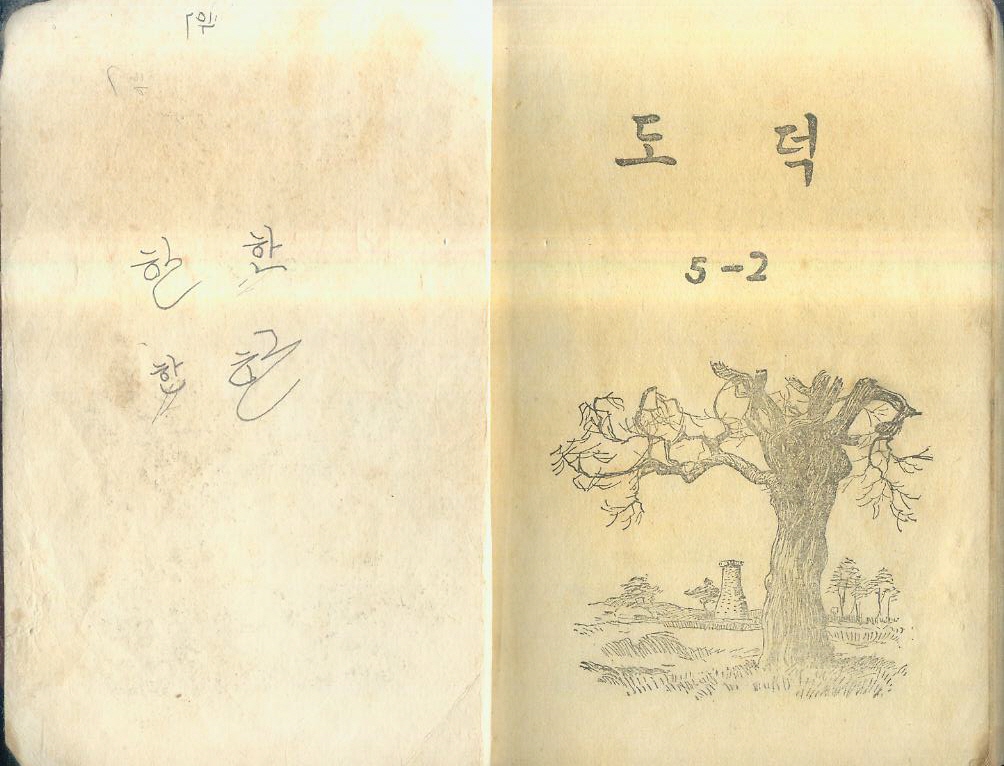 한 한
한 한
도 덕
5-2